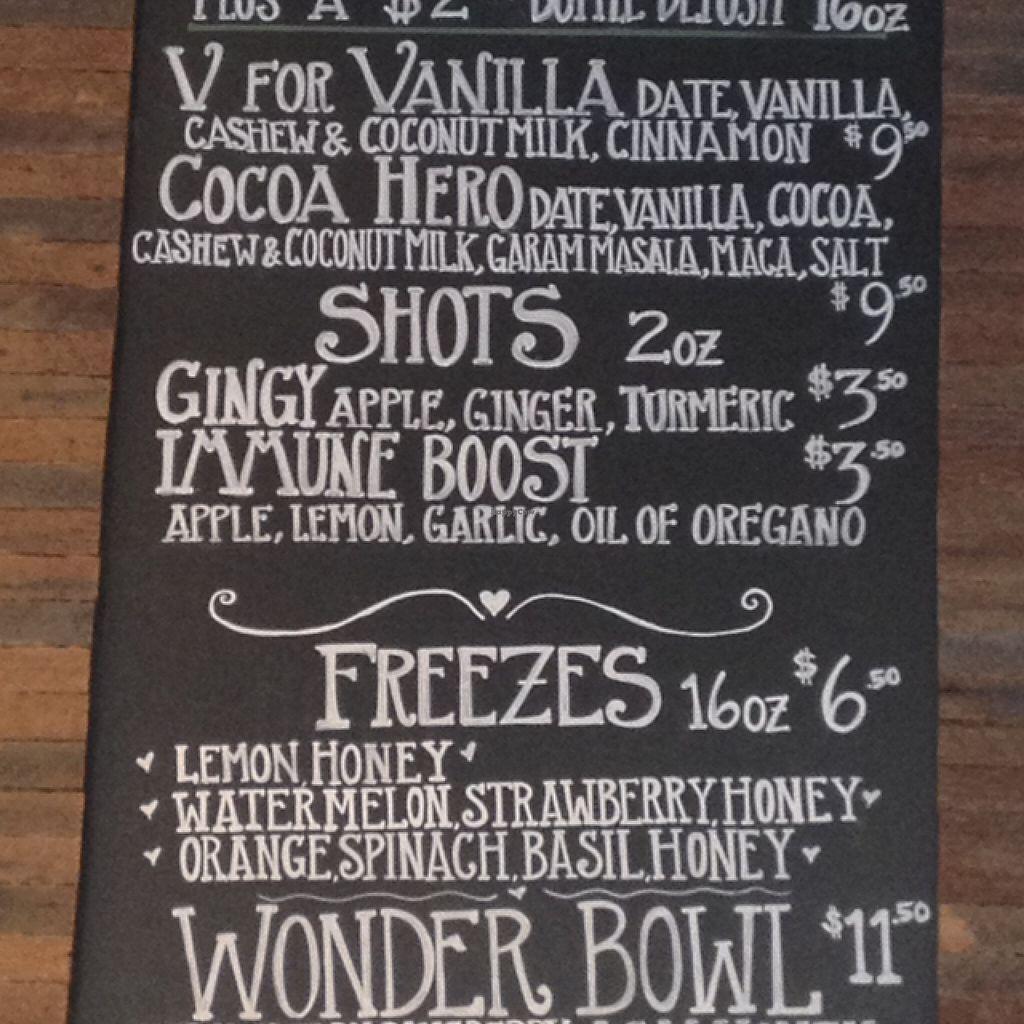 PLUS A $2 BOTTLE DEPOSIT 16OZ
V FOR VANILLA DATE, VANILLA,
CASHEW & COCONUT MILK, CINNAMON $9.50
COCOA HERO DATE, VANILLA, COCOA,
CASHEW & COCONUT MILK, GARAM MASALA, MACA, SALT
$9.50
SHOTS 2OZ
GINGY APPLE, GINGER, TURMERIC $3.50
IMMUNE BOOST $3.50
APPLE, LEMON, GARLIC, OIL OF OREGANO
FREEZES 16OZ $6.50
LEMON, HONEY
WATERMELON, STRAWBERRY, HONEY
ORANGE, SPINACH, BASIL, HONEY
WONDER BOWL $11.50